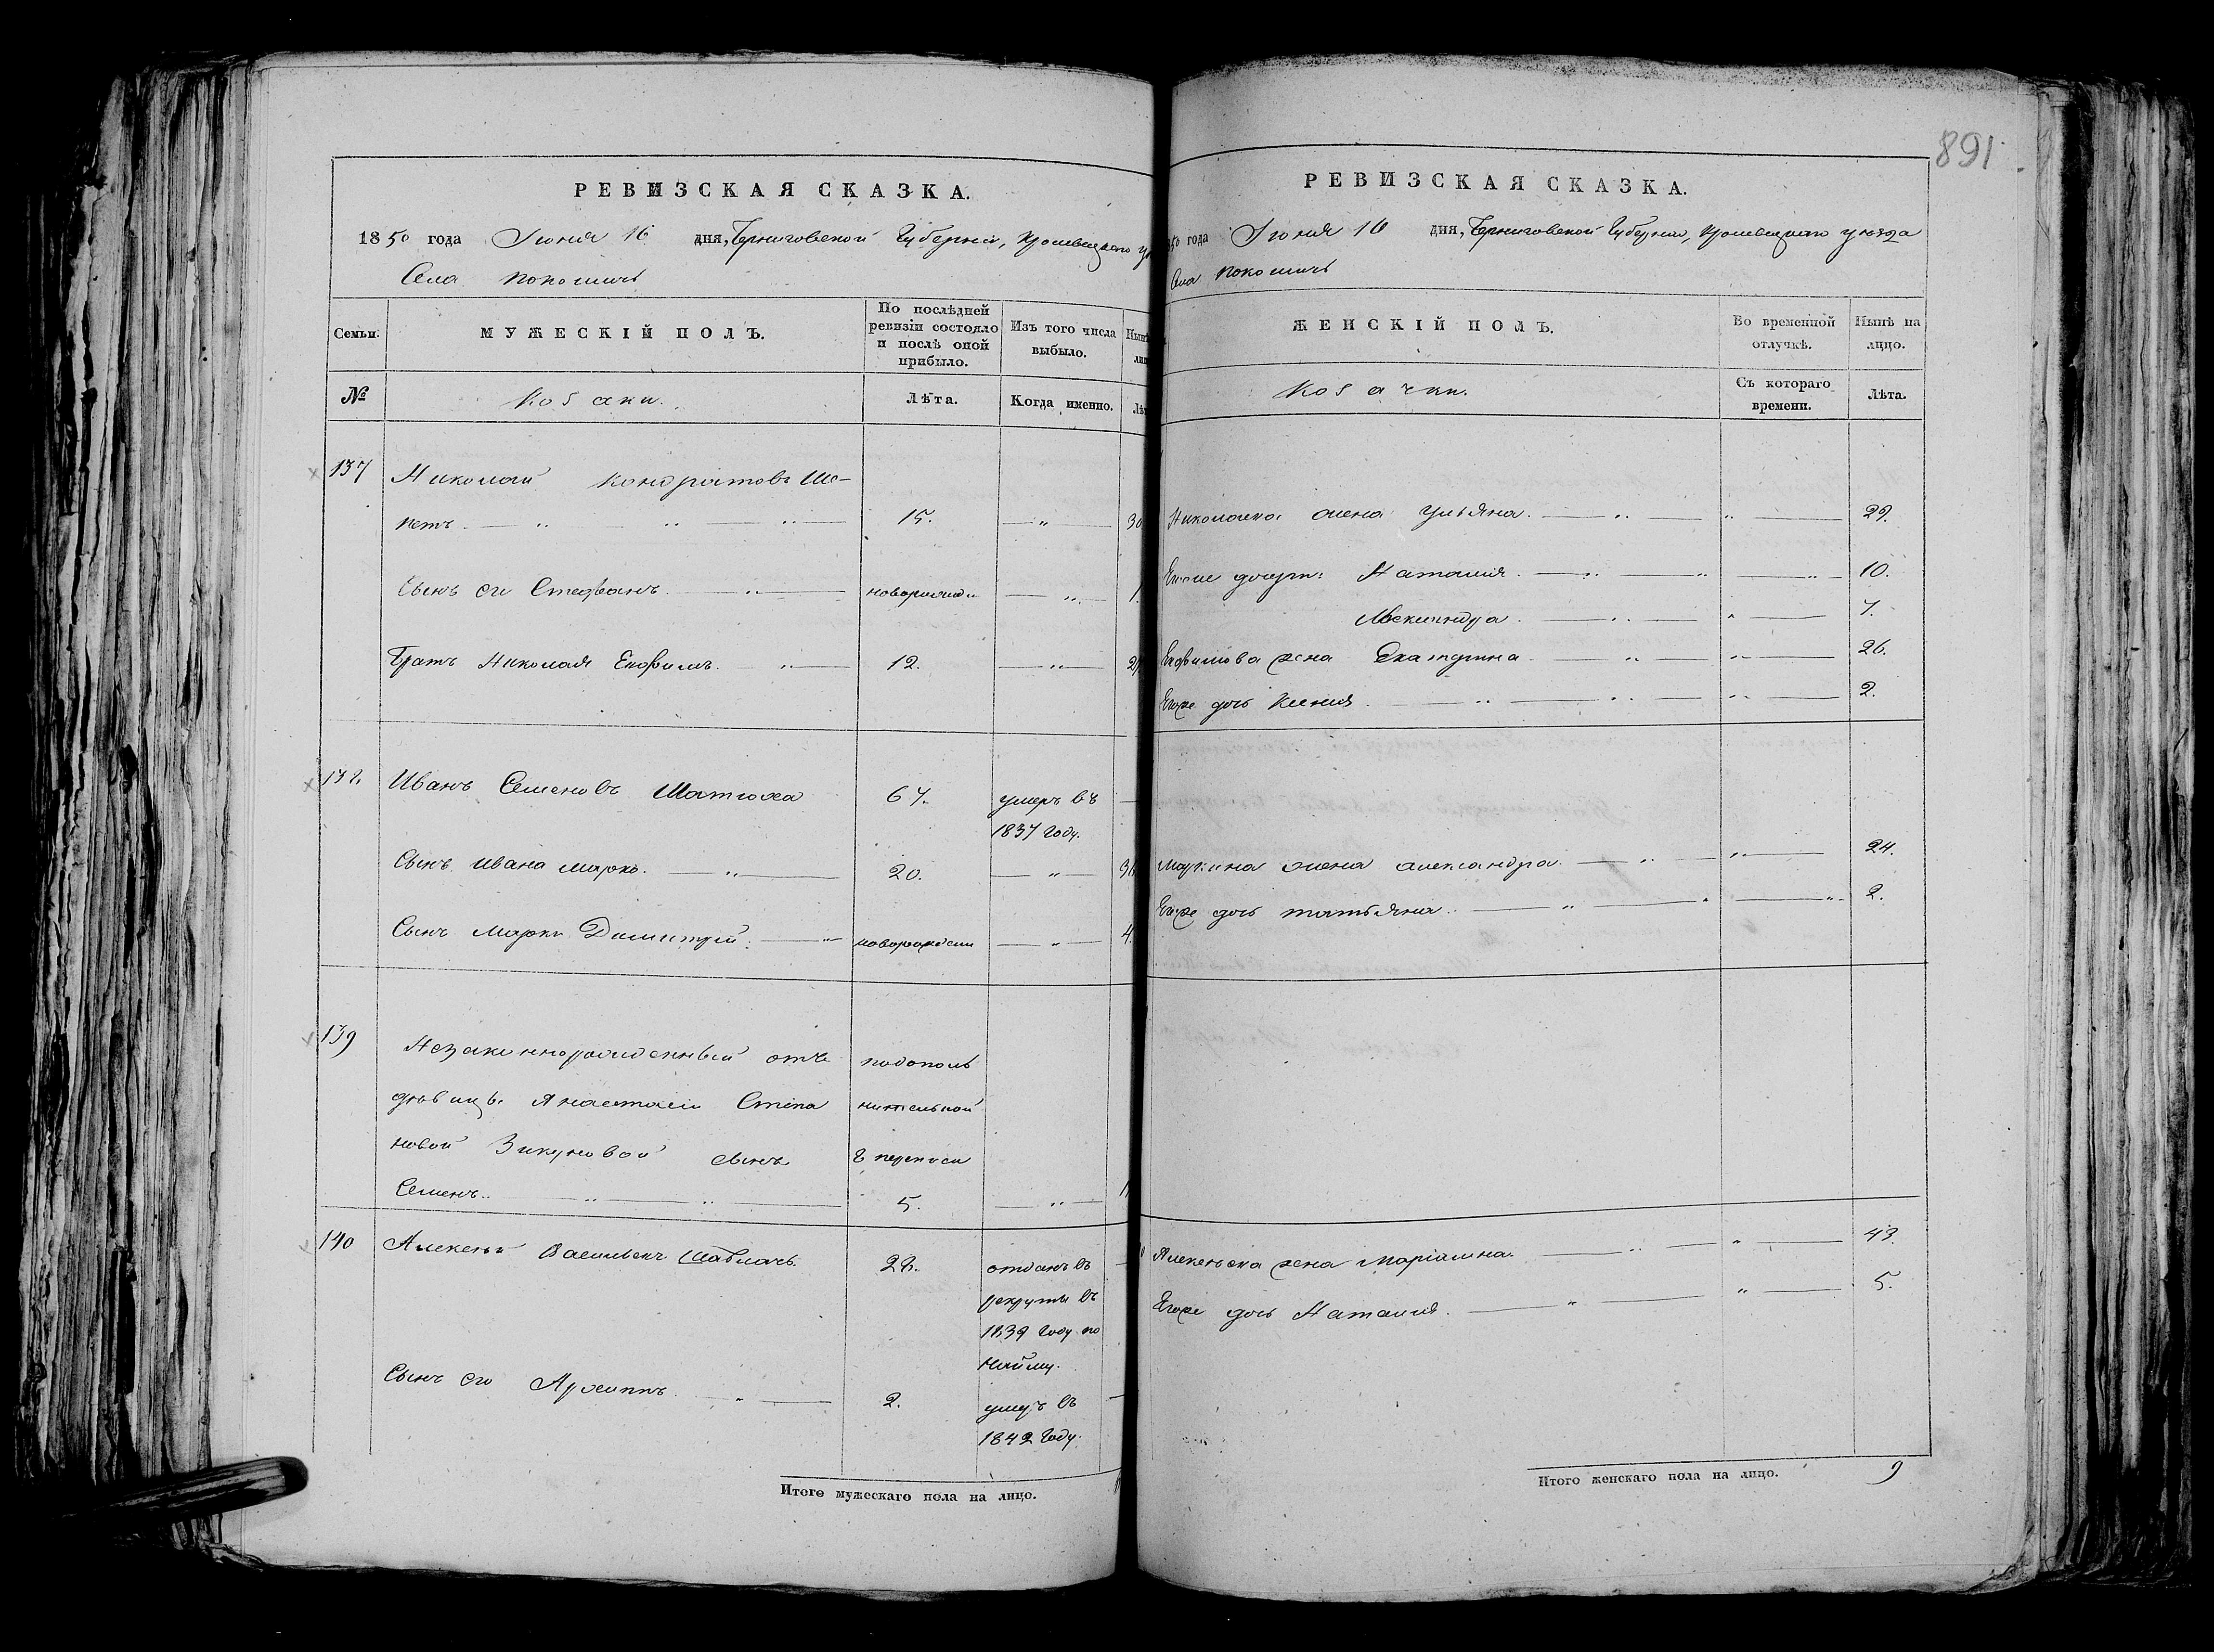 891
РЕВИЗСКАЯ СКАЗКА.
1850 года Іюня 16 дня, Черниговской Губерніи, Кролевецкаго
Села Покошичь
Семьи.
МУЖЕСКІЙ ПОЛЪ.
По послѣдней
ревизіи состояло
и послѣ оной
прибыло.
Изъ того числа
выбыло.
№
Козаки.
Лѣта.
Когда именно.
137
Николай Кондратовъ Ше-
петъ. 15. 30
Сынъ его Стефанъ. новорожден 1.
Братъ Николая Евфимъ. 12.
138. Иванъ Семеновъ Матюха 67. умеръ въ
1837 году.
Сынъ Ивана Марко. 20.
Сынъ Марка Димитрий. новорожден 4.
139
Незаконнорожденный отъ по дополъ
дѣвицы Анастасіи Степа нительной
новой Зикуновой сынъ переписи
Семенъ. 5.
140 Алексей Васильевъ Шаблачъ. 28. отданъ въ
рекруты въ
1839 году по
найму.
Сынъ его Архипъ. 2. умеръ въ
1842 году.
Итого мужескаго пола на лицо.
РЕВИЗСКАЯ СКАЗКА.
50 года Іюня 16 дня, Черниговской Губерніи, Кролевецкаго уѣзда
Села Покошичь
ЖЕНСКІЙ ПОЛЪ.
Во временной
отлучкѣ.
Нынѣ на
лицо.
Козачки.
Съ котораго
времени.
Лѣта.
Николаева жена Ульяна. 29.
Егоже дочери: Наталия. 10.
Александра. 7.
Евфимова жена Екатерина. 26.
Егоже дочь Ксения. 2.
Маркина жена Александра. 24.
Егоже дочь Татьяна. 2.
Алексѣева жена Маріамна. 43.
Егоже дочь Наталия. 5.
Итого женскаго пола на лицо. 9